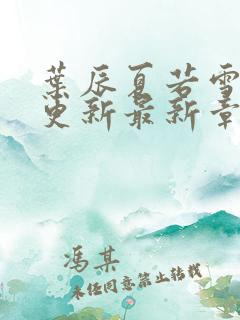 葉辰夏若雪
更新最新章
馮某
未經同意禁止轉載